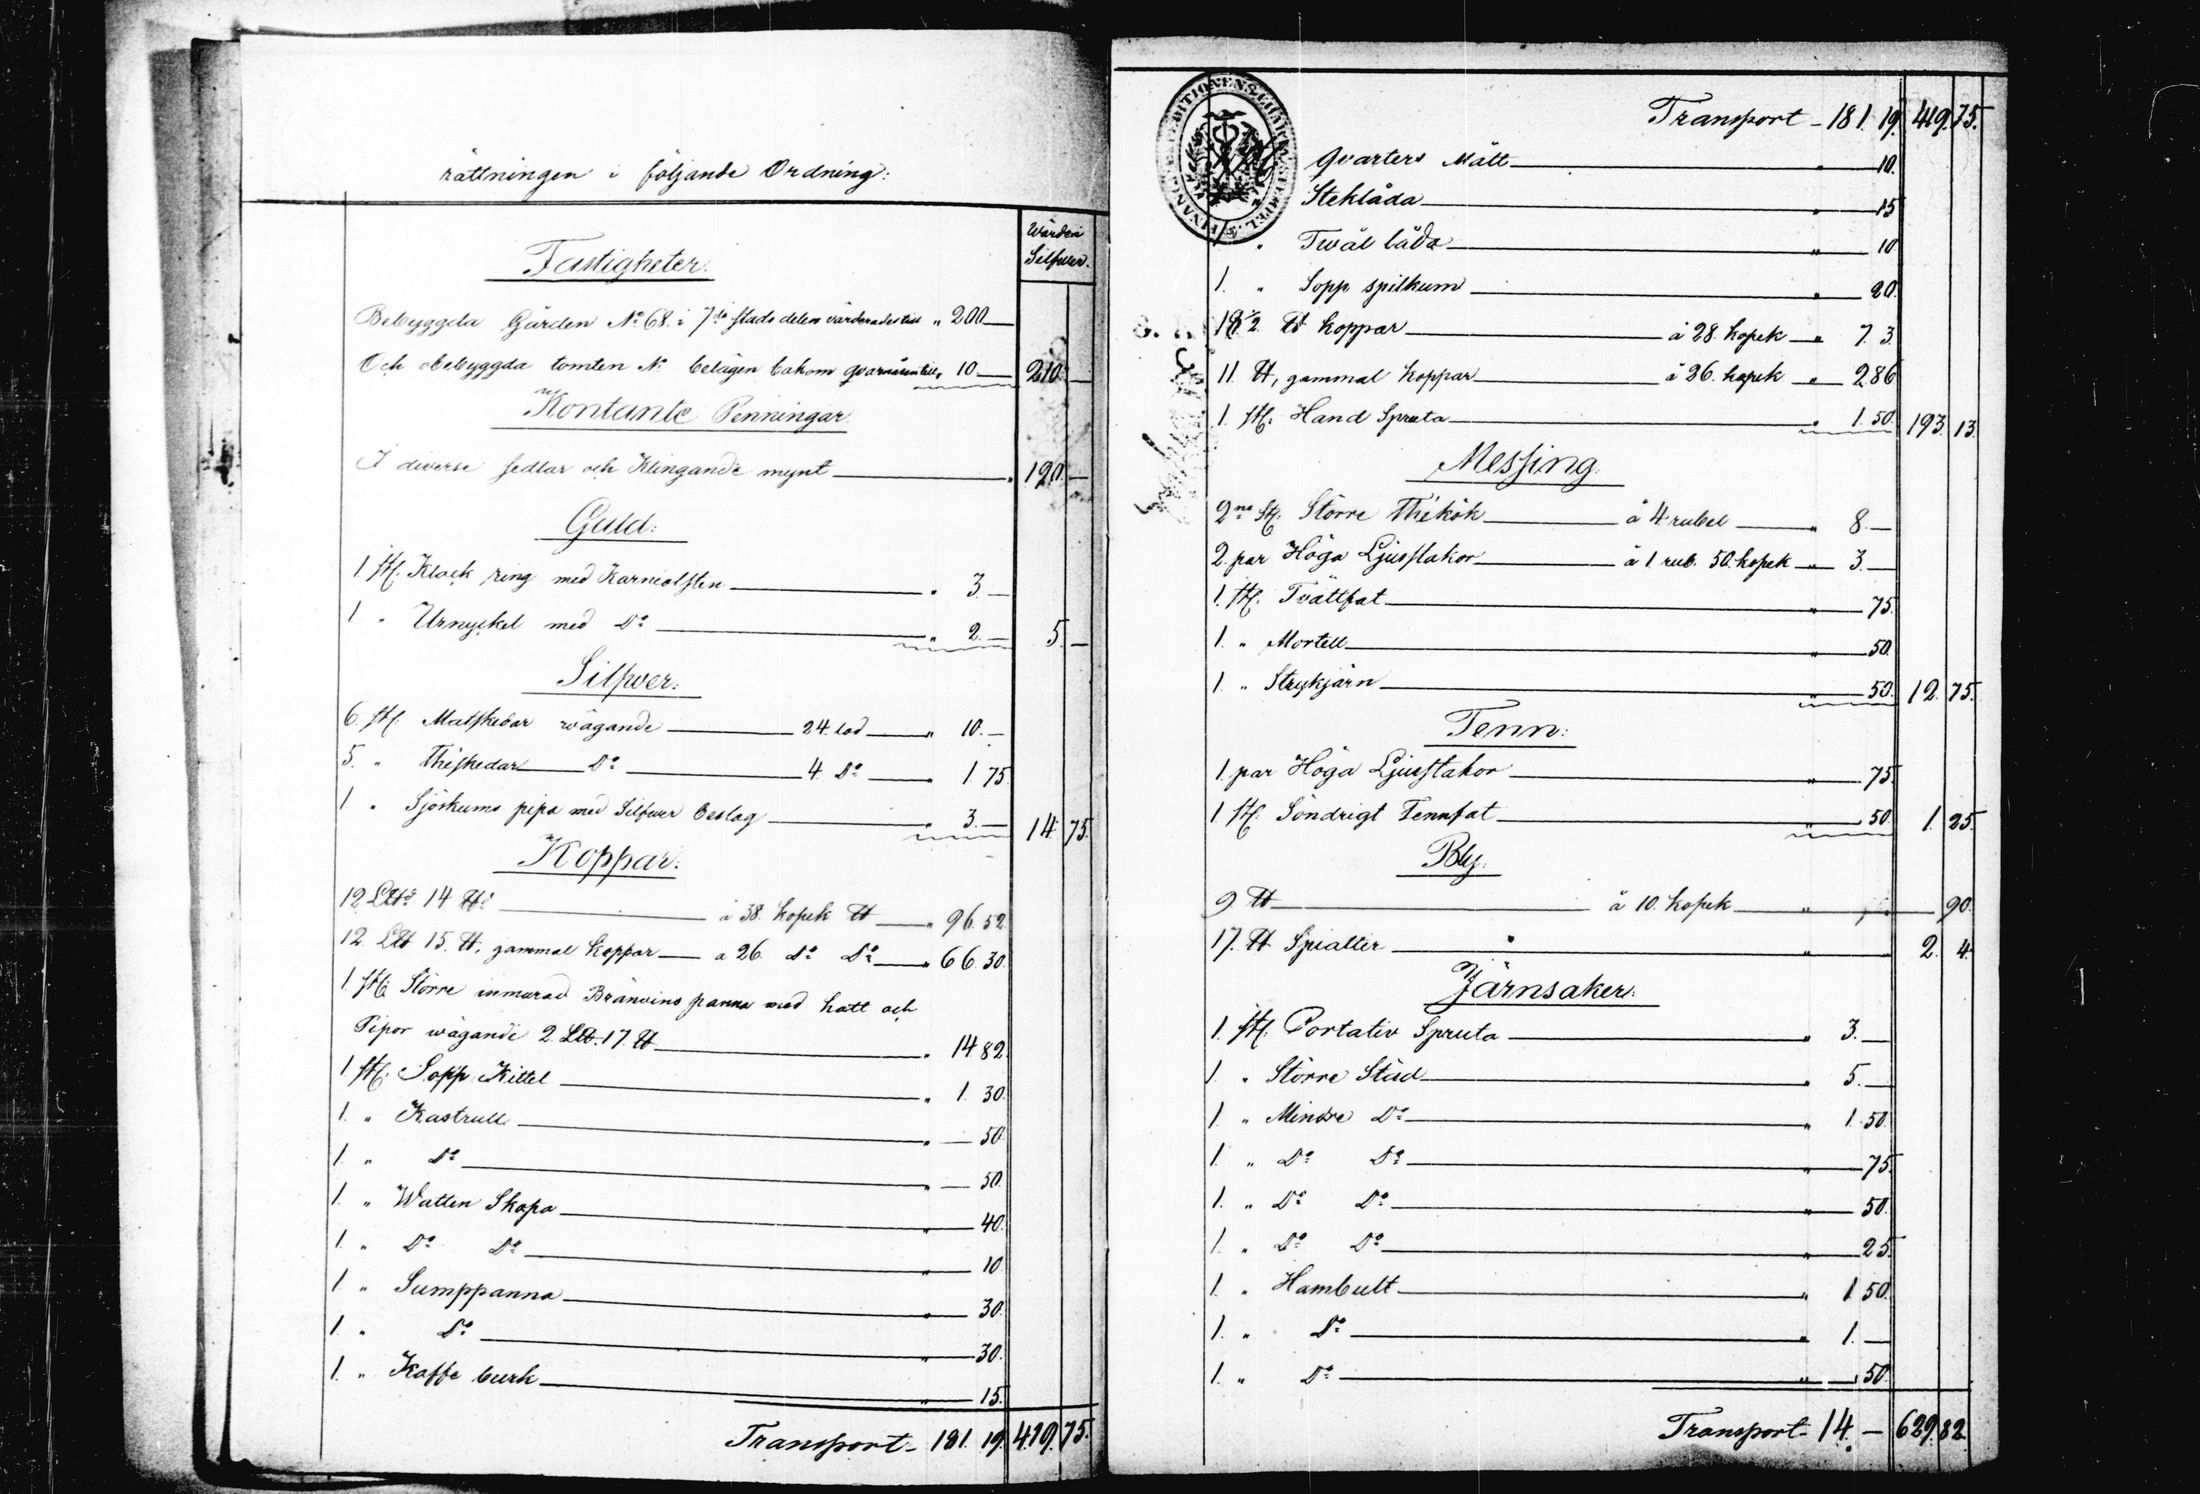 rättningen i följande Ordning:
Wärden Silfwer.
Fastigheter.
Bebyggda Gården No 68. i 7de stads delen värderades till " 200 —
Och obebyggda tomten No belägen bakom qvarnåsen till " 10 — 210. —
Kontante Penningar.
I diverse sedlar och Klingande mynt — " 190. —
Guld:
1 st. Klock ring med Karniolsten — " 3. —
1 " Urnyckel med Do — " 2. — 5. —
Silfwer:
6. st. Matskedar wägande — 24. lod — " 10. —
5. " Théskedar — Do — 4. Do — " 1 75.
1 " Sjöskums pipa med Silfwer beslag — " 3. — 14. 75.
Koppar:
12 L℔ 14 ℔ — à 38. kopek ℔ — " 96. 52.
12. L℔ 15. ℔, gammal koppar — a 26. Do Do — " 66. 30.
1 st. Större inmurad Bränvins panna med hatt och
Pipor wägande 2. L℔. 17. ℔ — " 14 82.
1 st. Sopp Kittel — " 1. 30.
1. " Kastrull — " — 50.
1. " Do — " — 50.
1. " Watten Skopa — " — 40.
1. " Do Do — " — 10
1 " Sumppanna — " — 30.
1. " Do — " — 30.
1. " Kaffe burk — " — 15.
Transport — 181. 19. 419. 75.
FINANS-EXPEDITIONENS CHARTÆ STEMPEL.
Transport — 181. 19. 419. 75.
Qvarters Mått — " — 10.
Steklåda — " — 15
" Twål låda — " — 10
1. " Sopp spilkum — " — 20.
18 1/2 ℔ koppar — à 28. kopek — " 7. 3.
11. ℔, gammal koppar — à 26. kopek — " 2 86
1. st. Hand Spruta — " 1. 50. 193. 13.
Messing.
2ne st. Större Thékök — à 4 rubel — " 8. —
2. par Höga Ljusstakar — à 1 rub. 50. kopek — " 3. —
1. st. Tvättfat — " — 75.
1. " Mortell — " — 50.
1. " Strykjärn — " — 50. 12. 75.
Tenn:
1. par Höga Ljusstakar — " — 75.
1 st. Söndrigt Tennfat — " — 50 1. 25.
Bly.
9 ℔ — à 10. kopek — " — 90.
17. ℔ Spialter — " — " 2. 4.
Järnsaker:
1. st. Portativ Spruta — " 3. —
1. " Större Städ — " 5. —
1. " Mindre Do — " 1. 50.
1. " Do Do — " — 75.
1. " Do Do — " — 50.
1. " Do Do — " — 25.
1. " Hambult — " 1 50.
1. " Do — " 1. —
1. " Do — " — 50.
Transport — 14. — 629. 82.